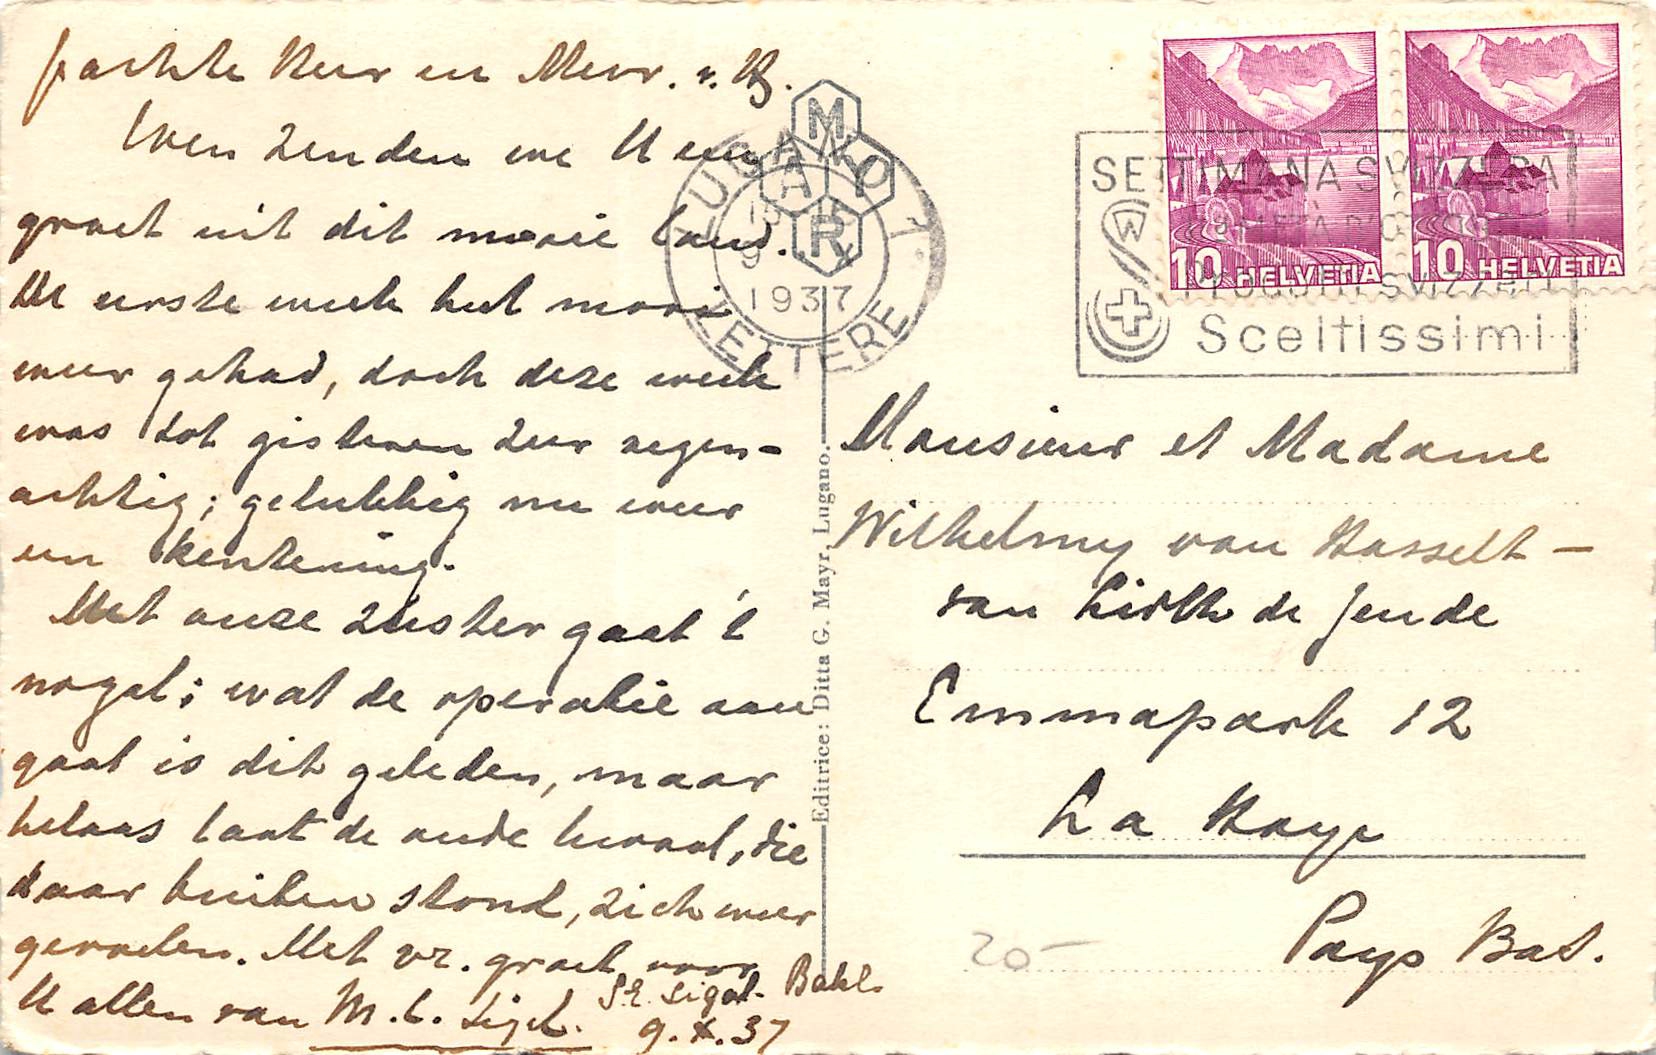 Geachte Heer en Mevr. v. H.
Even zenden we U een
groet uit dit mooie land.
De eerste week het mooi
weer gehad, doch deze week
was tot gisteren zeer regen-
achtig; gelukkig nu weer
een kentering.
Met onze zuster gaat 't
nogal; wat de operatie aan
gaat is dit geleden, maar
helaas laat de oude kwaal, die
daar buiten stond, zich weer
gevoelen. Met vr. groet, voor
U allen van M.C. Sigal.
S.E. Sigal-Bahl.
9.X.37
Editrice: Ditta G. Mayr, Lugano.
MAYR
LUGANO 1
1937
LETTERE
SETTIMANA SVIZZERA
Sceltissimi
10 HELVETIA
10 HELVETIA
Monsieur et Madame
Wilhelmy van Hasselt –
van Lidth de Jeude
Emmapark 12
La Haye
Pays Bas.
20 –